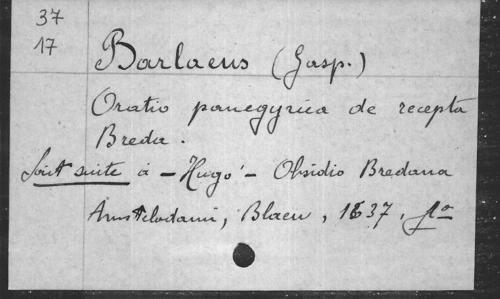 37
17
Barlaeus (Gasp.)
Oratio panegyrica de recepta
Breda.
Fait suite à - Hugo - Obsidio Bredana
Amstelodami, Blaeu, 1637, fo